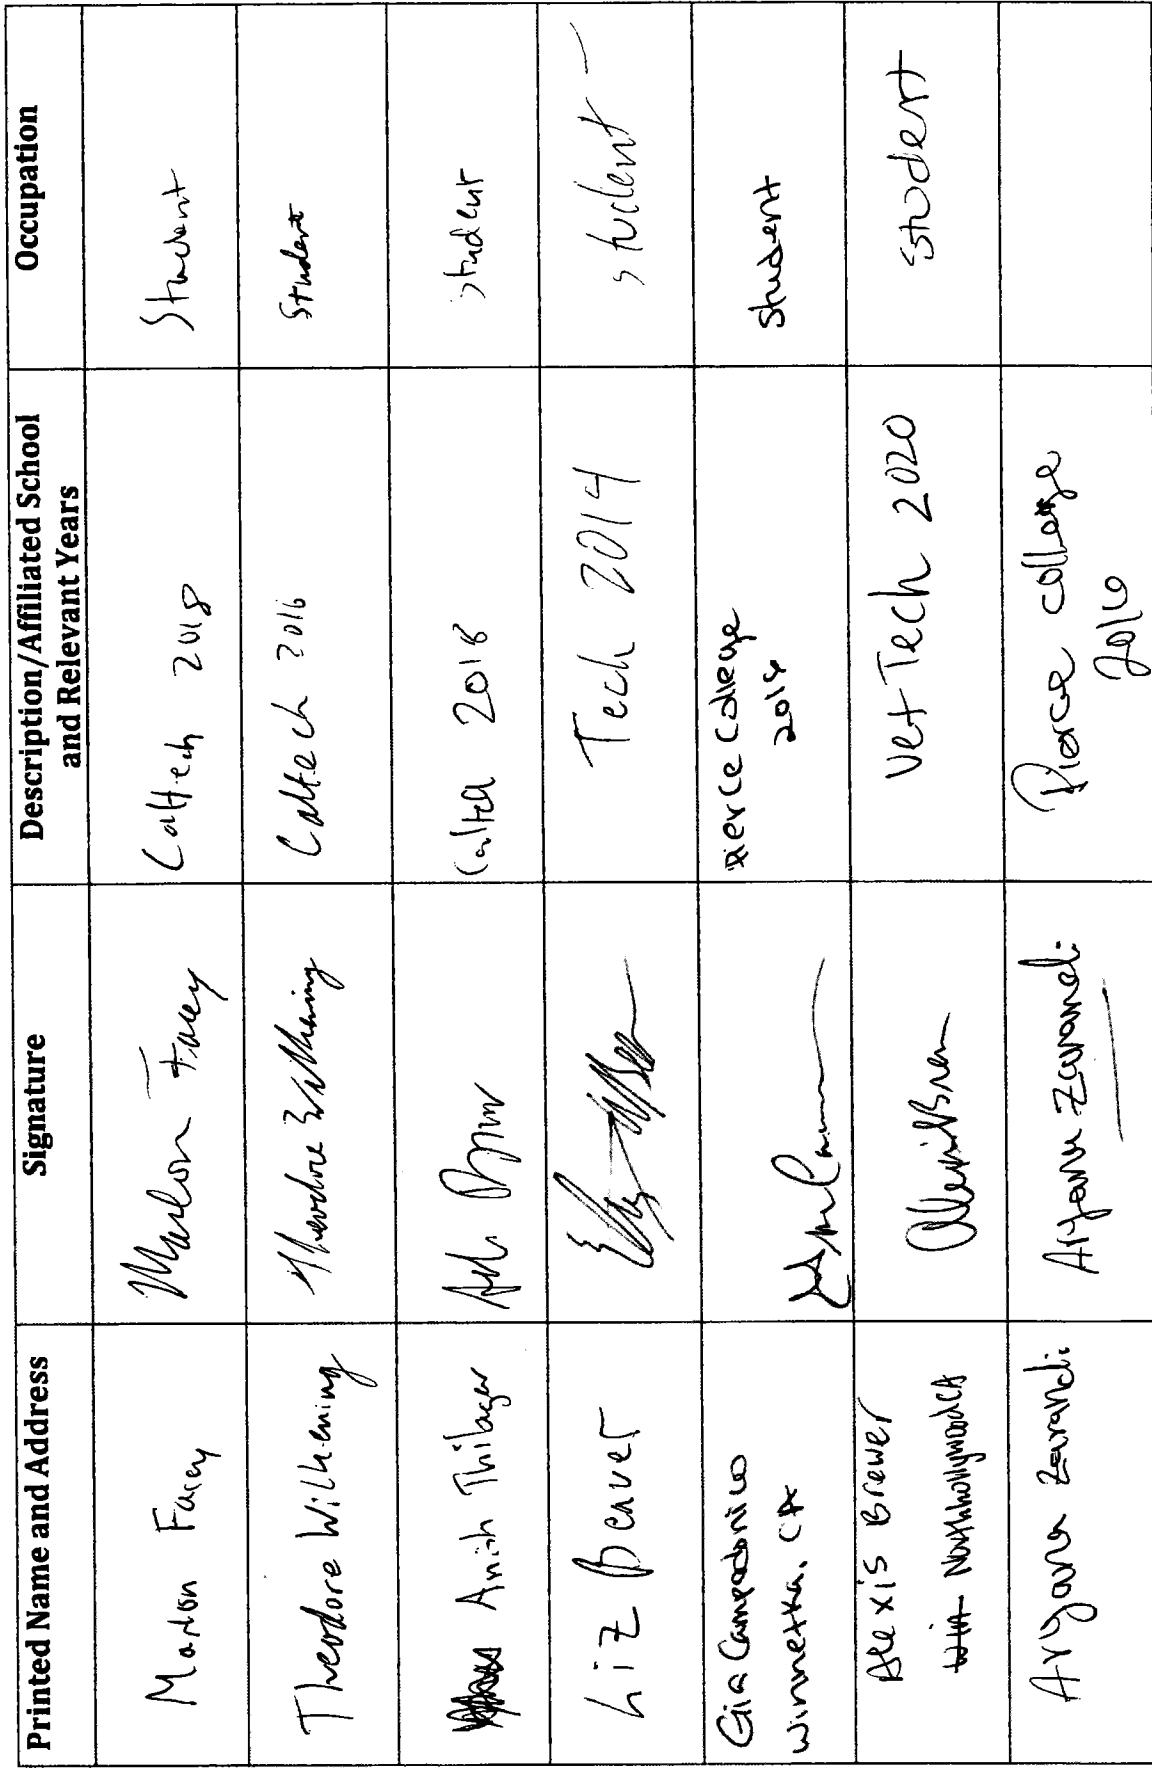 Printed Name and Address
Signature
Description/Affiliated School
and Relevant Years
Occupation
Marlon Facey
Marlon Facey
Caltech 2018
Student
Theodore Wilkening
Theodore Wilkening
Caltech 2016
Student
Anish Thilagar
2018
student
Liz Beaver
Tech 2014
student
Gia Campodonico
Winnetka, CA
Pierce College
2014
student
Alexis Brewer
North hollywood CA
Alexis Brewer
Vet Tech 2020
student
Aryana Zarandi
Aryana Zarandi
Pierce college
2016